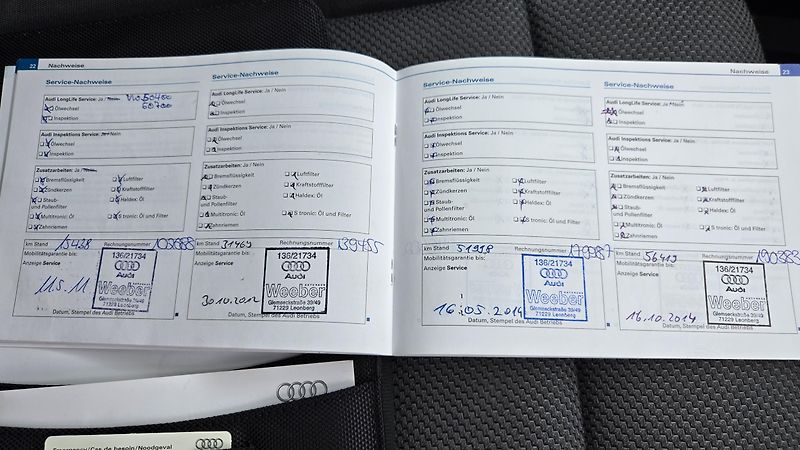 22 Nachweise
Service-Nachweise
Audi LongLife Service: Ja / Nein VW 50400
50700
Ölwechsel
Inspektion
Audi Inspektions Service: Ja / Nein
Ölwechsel
Inspektion
Zusatzarbeiten: Ja / Nein
Bremsflüssigkeit Luftfilter
Zündkerzen Kraftstofffilter
Staub- Haldex: Öl
und Pollenfilter
Multitronic: Öl S tronic: Öl und Filter
Zahnriemen
km Stand 15428 Rechnungsnummer
Mobilitätsgarantie bis:
Anzeige Service
136/21734
Audi
Weeber
Glemseckstraße 39/49
71229 Leonberg
Datum, Stempel des Audi Betriebs
Service-Nachweise
Audi LongLife Service: Ja / Nein
Ölwechsel
Inspektion
Audi Inspektions Service: Ja / Nein
Ölwechsel
Inspektion
Zusatzarbeiten: Ja / Nein
Bremsflüssigkeit Luftfilter
Zündkerzen Kraftstofffilter
Staub- Haldex: Öl
und Pollenfilter
Multitronic: Öl S tronic: Öl und Filter
Zahnriemen
km Stand 31469 Rechnungsnummer 139455
Mobilitätsgarantie bis:
Anzeige Service
136/21734
Audi
Weeber
Glemseckstraße 39/49
71229 Leonberg
30.10.2012
Datum, Stempel des Audi Betriebs
Service-Nachweise
Audi LongLife Service: Ja / Nein
Ölwechsel
Inspektion
Audi Inspektions Service: Ja / Nein
Ölwechsel
Inspektion
Zusatzarbeiten: Ja / Nein
Bremsflüssigkeit Luftfilter
Zündkerzen Kraftstofffilter
Staub- Haldex: Öl
und Pollenfilter
Multitronic: Öl S tronic: Öl und Filter
Zahnriemen
km Stand 51998 Rechnungsnummer
Mobilitätsgarantie bis:
Anzeige Service
136/21734
Audi
Weeber
Glemseckstraße 39/49
71229 Leonberg
16.05.2014
Datum, Stempel des Audi Betriebs
Nachweise 23
Service-Nachweise
Audi LongLife Service: Ja / Nein
Ölwechsel
Inspektion
Audi Inspektions Service: Ja / Nein
Ölwechsel
Inspektion
Zusatzarbeiten: Ja / Nein
Bremsflüssigkeit Luftfilter
Zündkerzen Kraftstofffilter
Staub- Haldex: Öl
und Pollenfilter
Multitronic: Öl S tronic: Öl und Filter
Zahnriemen
km Stand 56419 Rechnungsnummer
Mobilitätsgarantie bis:
Anzeige Service
136/21734
Audi
Weeber
Glemseckstraße 39/49
71229 Leonberg
16.10.2014
Datum, Stempel des Audi Betriebs
Emergency/Cas de besoin/Noodgeval